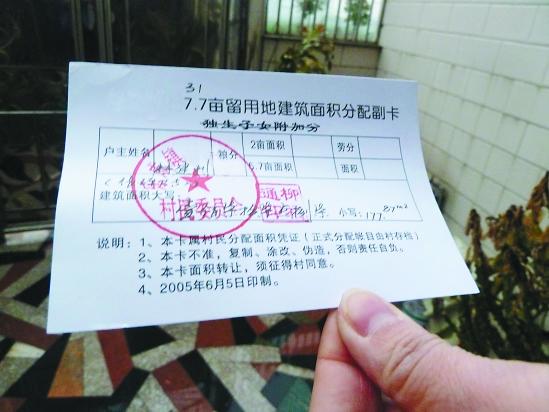 31
7.7亩留用地建筑面积分配副卡
独生子女附加分
户主姓名 粮分 2亩面积 劳分
5.7亩面积 面积
建筑面积大写: 小写: 177.
村民委员会
说明:1、本卡属村民分配面积凭证(正式分配账目由村存档)
2、本卡不准,复制、涂改、伪造,否则责任自负。
3、本卡面积转让,须征得村同意。
4、2005年6月5日印制。